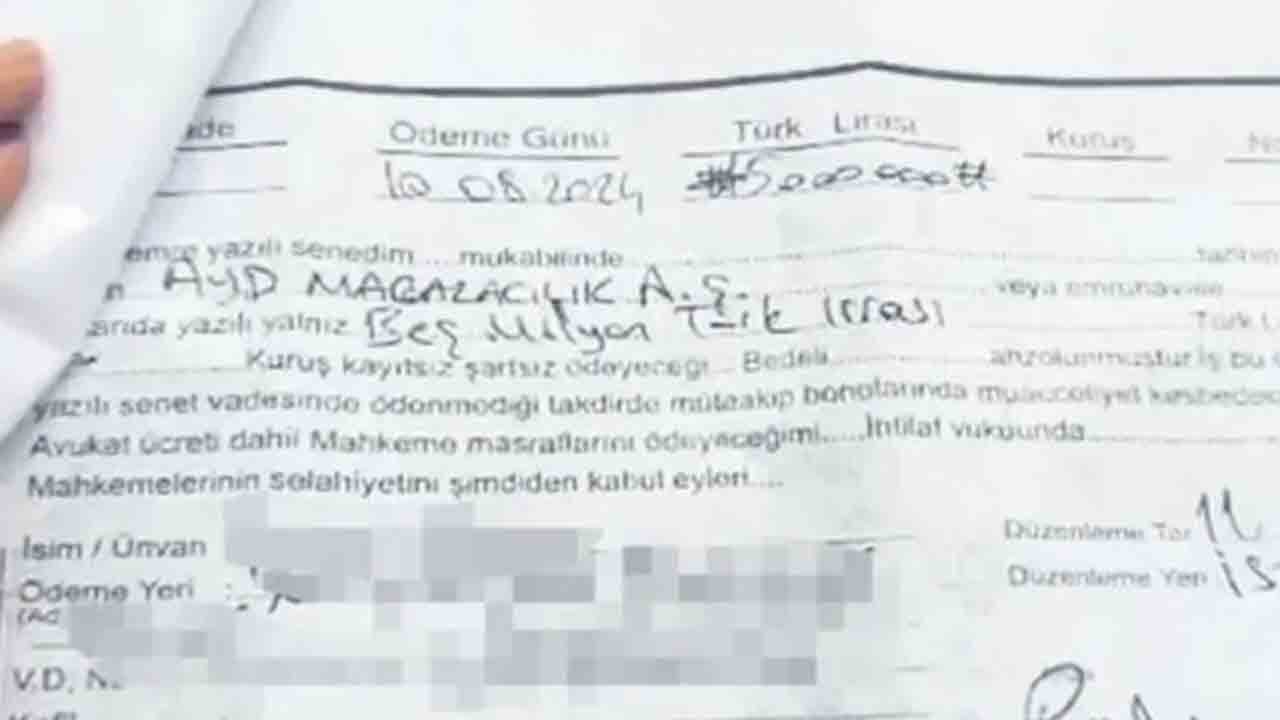 Ödeme Günü Türk Lirası Kuruş
10.08.2024 #5.000.000#
yazılı senedim .... mukabilinde
AYD MAĞAZACILIK A.Ş. veya emruhavale
yazılı yalnız Beş Milyon Türk lirası Türk L
Kuruş kayıtsız şartsız ödeyeceğı... Bedeli ahzolunmuştur İş bu
yazılı senet vadesinde ödenmediği takdirde müteakip bonolarında muacceliyet kesbedec
Avukat ücreti dahil Mahkeme masraflarını ödeyeceğimi.....İhtilaf vukuunda
Mahkemelerinin selahiyetini şimdiden kabul eyleri....
İsim / Ünvan Düzenleme Tar 11.
Ödeme Yeri : Düzenleme Yeri İs
V.D.